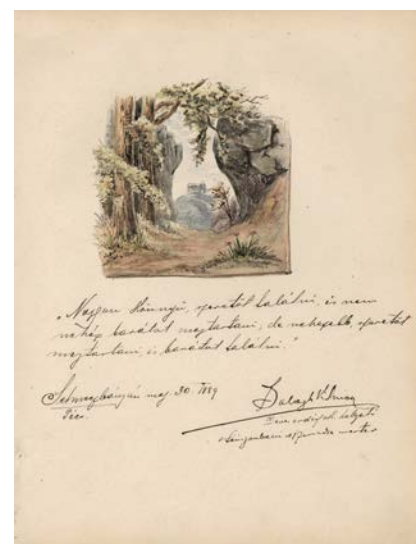 „Nagyon könnyű, szeretőt találni, és nem
nehéz barátot megtartani; de nehezebb, szeretőt
megtartani, és barátot találni."
Selmeczbányán maj 30. 1889
Balogh Vilmos